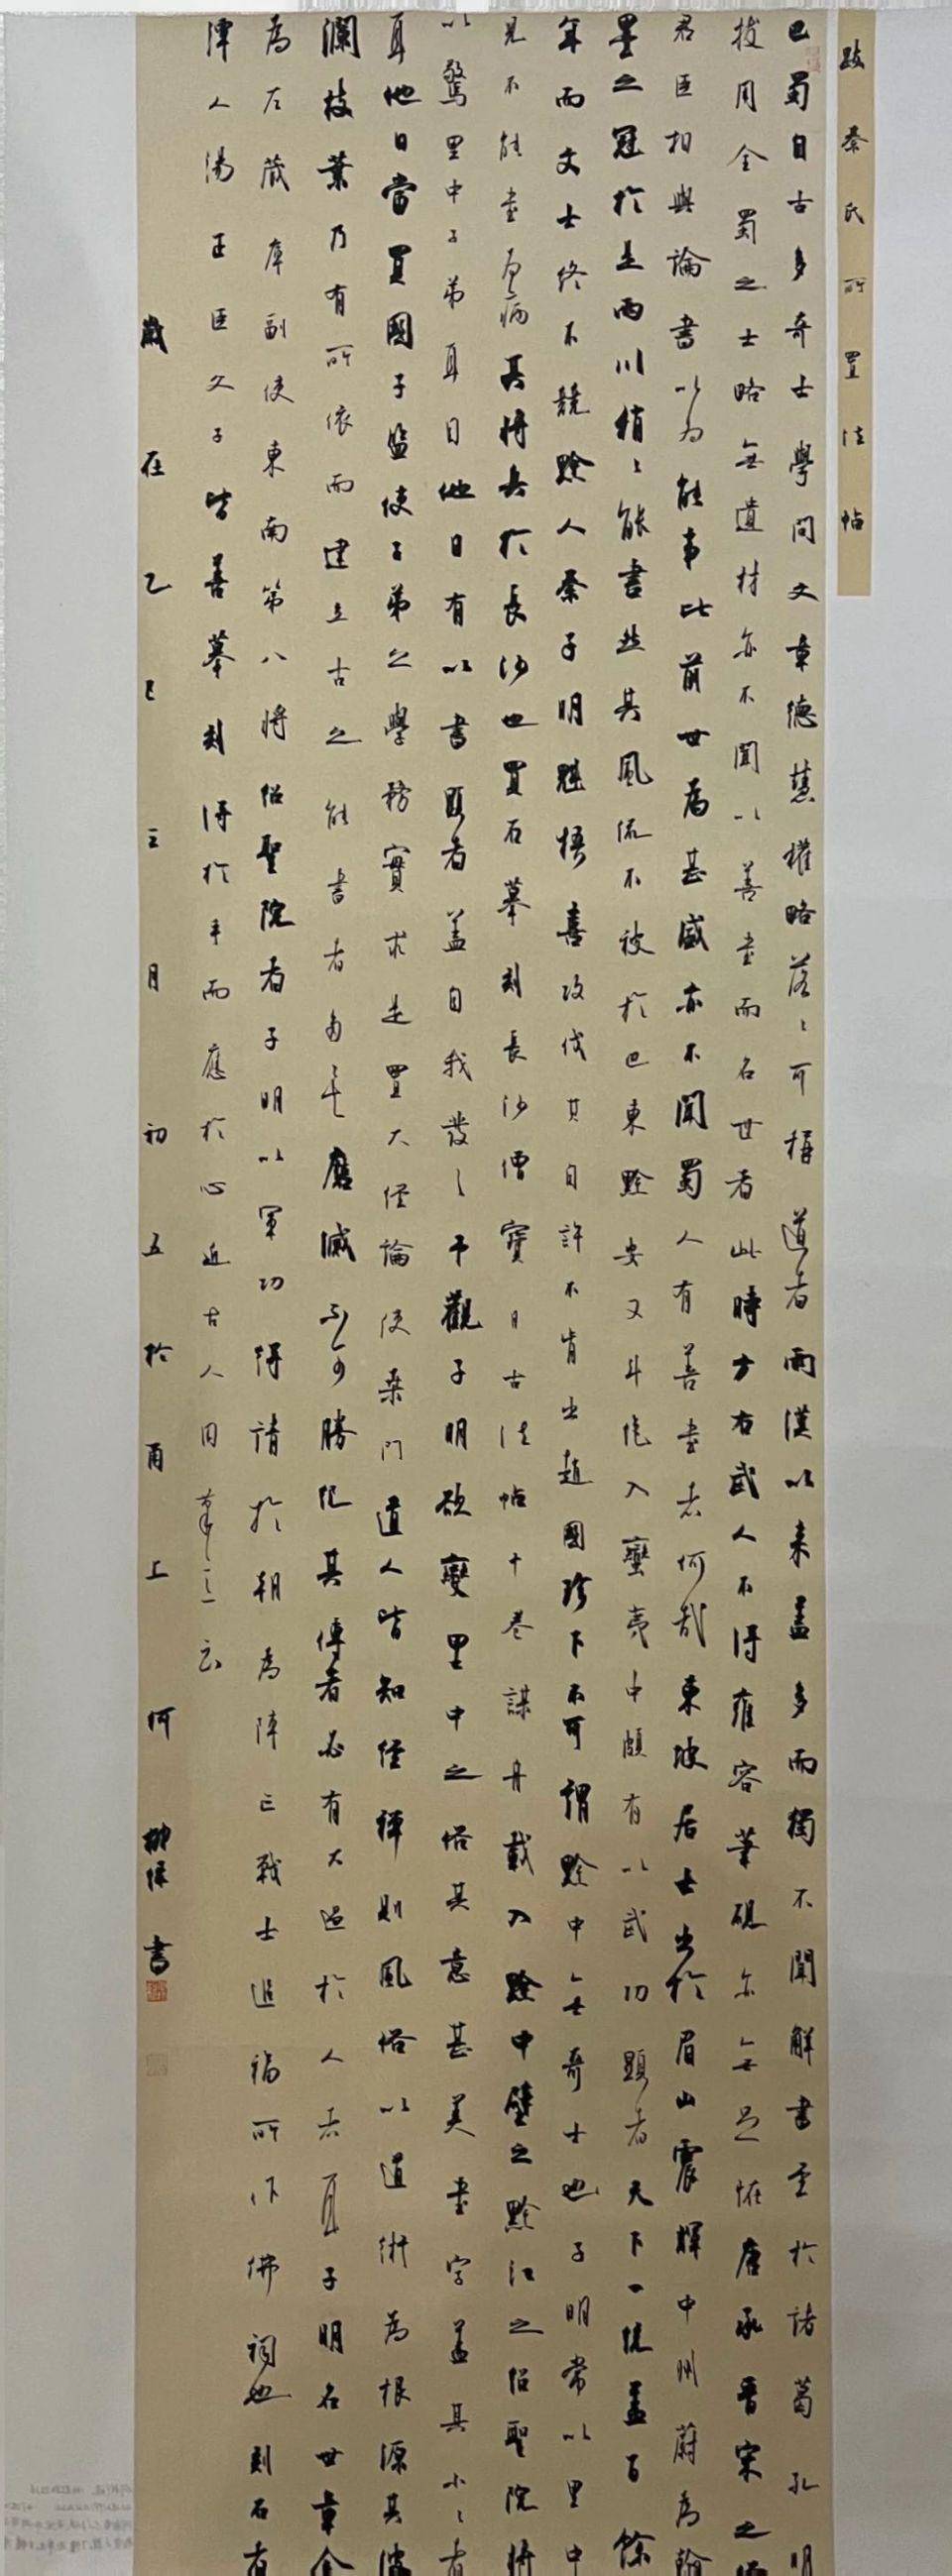 跋秦氏所置法帖
巴蜀自古多奇士學問文章德慧權略落〻可稱道者兩漢以来蓋多而獨不聞解書至於諸葛孔明
拔用全蜀之士略無遺材亦不聞以善書而名世者此時方右武人不得雍容筆硯亦無足怪唐承晋宋之
君臣相與論書以为能事比前世為甚盛亦不聞蜀人有善書者何哉東坡居士出於眉山震輝中州蔚為翰
墨之冠於是兩川稍〻能書然其風流不被於巴東黔安又斗絕入蠻夷中頗有以武功顯者天下一統蓋百餘
年而文士終不競黔人秦子明魁梧喜攻伐其自許不肯出趙國珍下不可謂黔中無奇士也子明常以里中
見不能書為病其將兵於長沙也買石摹刻長沙僧寶月古法帖十卷謀舟載入黔中壁之黔江之紹聖院將
以驚里中子弟耳目他日有以書顯者蓋自我發之予觀子明欲變里中之俗其意甚美書字蓋其小〻者
耳他日當買國子監使子弟之學務實求是置大經論使桑門道人皆知經禪則風俗以道術為根源其波
瀾枝葉乃有所依而建立古之能書者多矣磨滅不可勝紀其傳者必有大過於人者耳子明名世章今
為左藏庫副使東南第八將紹聖院者子明以軍功得請於朝為陣亡戰士追福所作佛祠也刻石者
潭人湯正臣父子皆善摹刻得於手而應於心近古人用筆意云
歲在乙巳三月初五於甬上 何 書